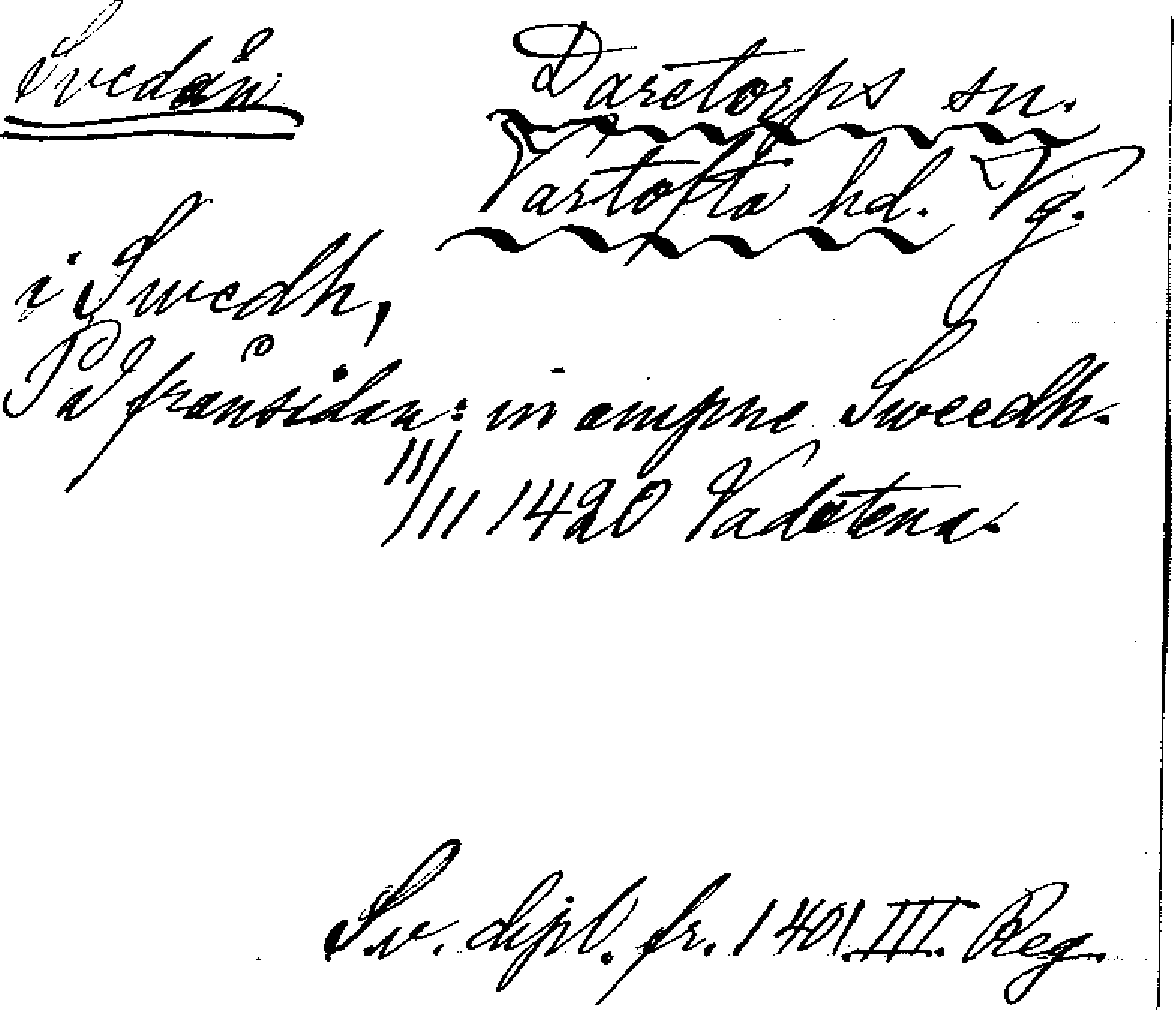 Svedån
Daretorps sn.
Vartofta hd. Vg.
i Swedh,
På frånsidan: in ampne Sweedh.
11/11 1420 Vadstena.
Sv. dipl. fr. 1401. III. Reg.